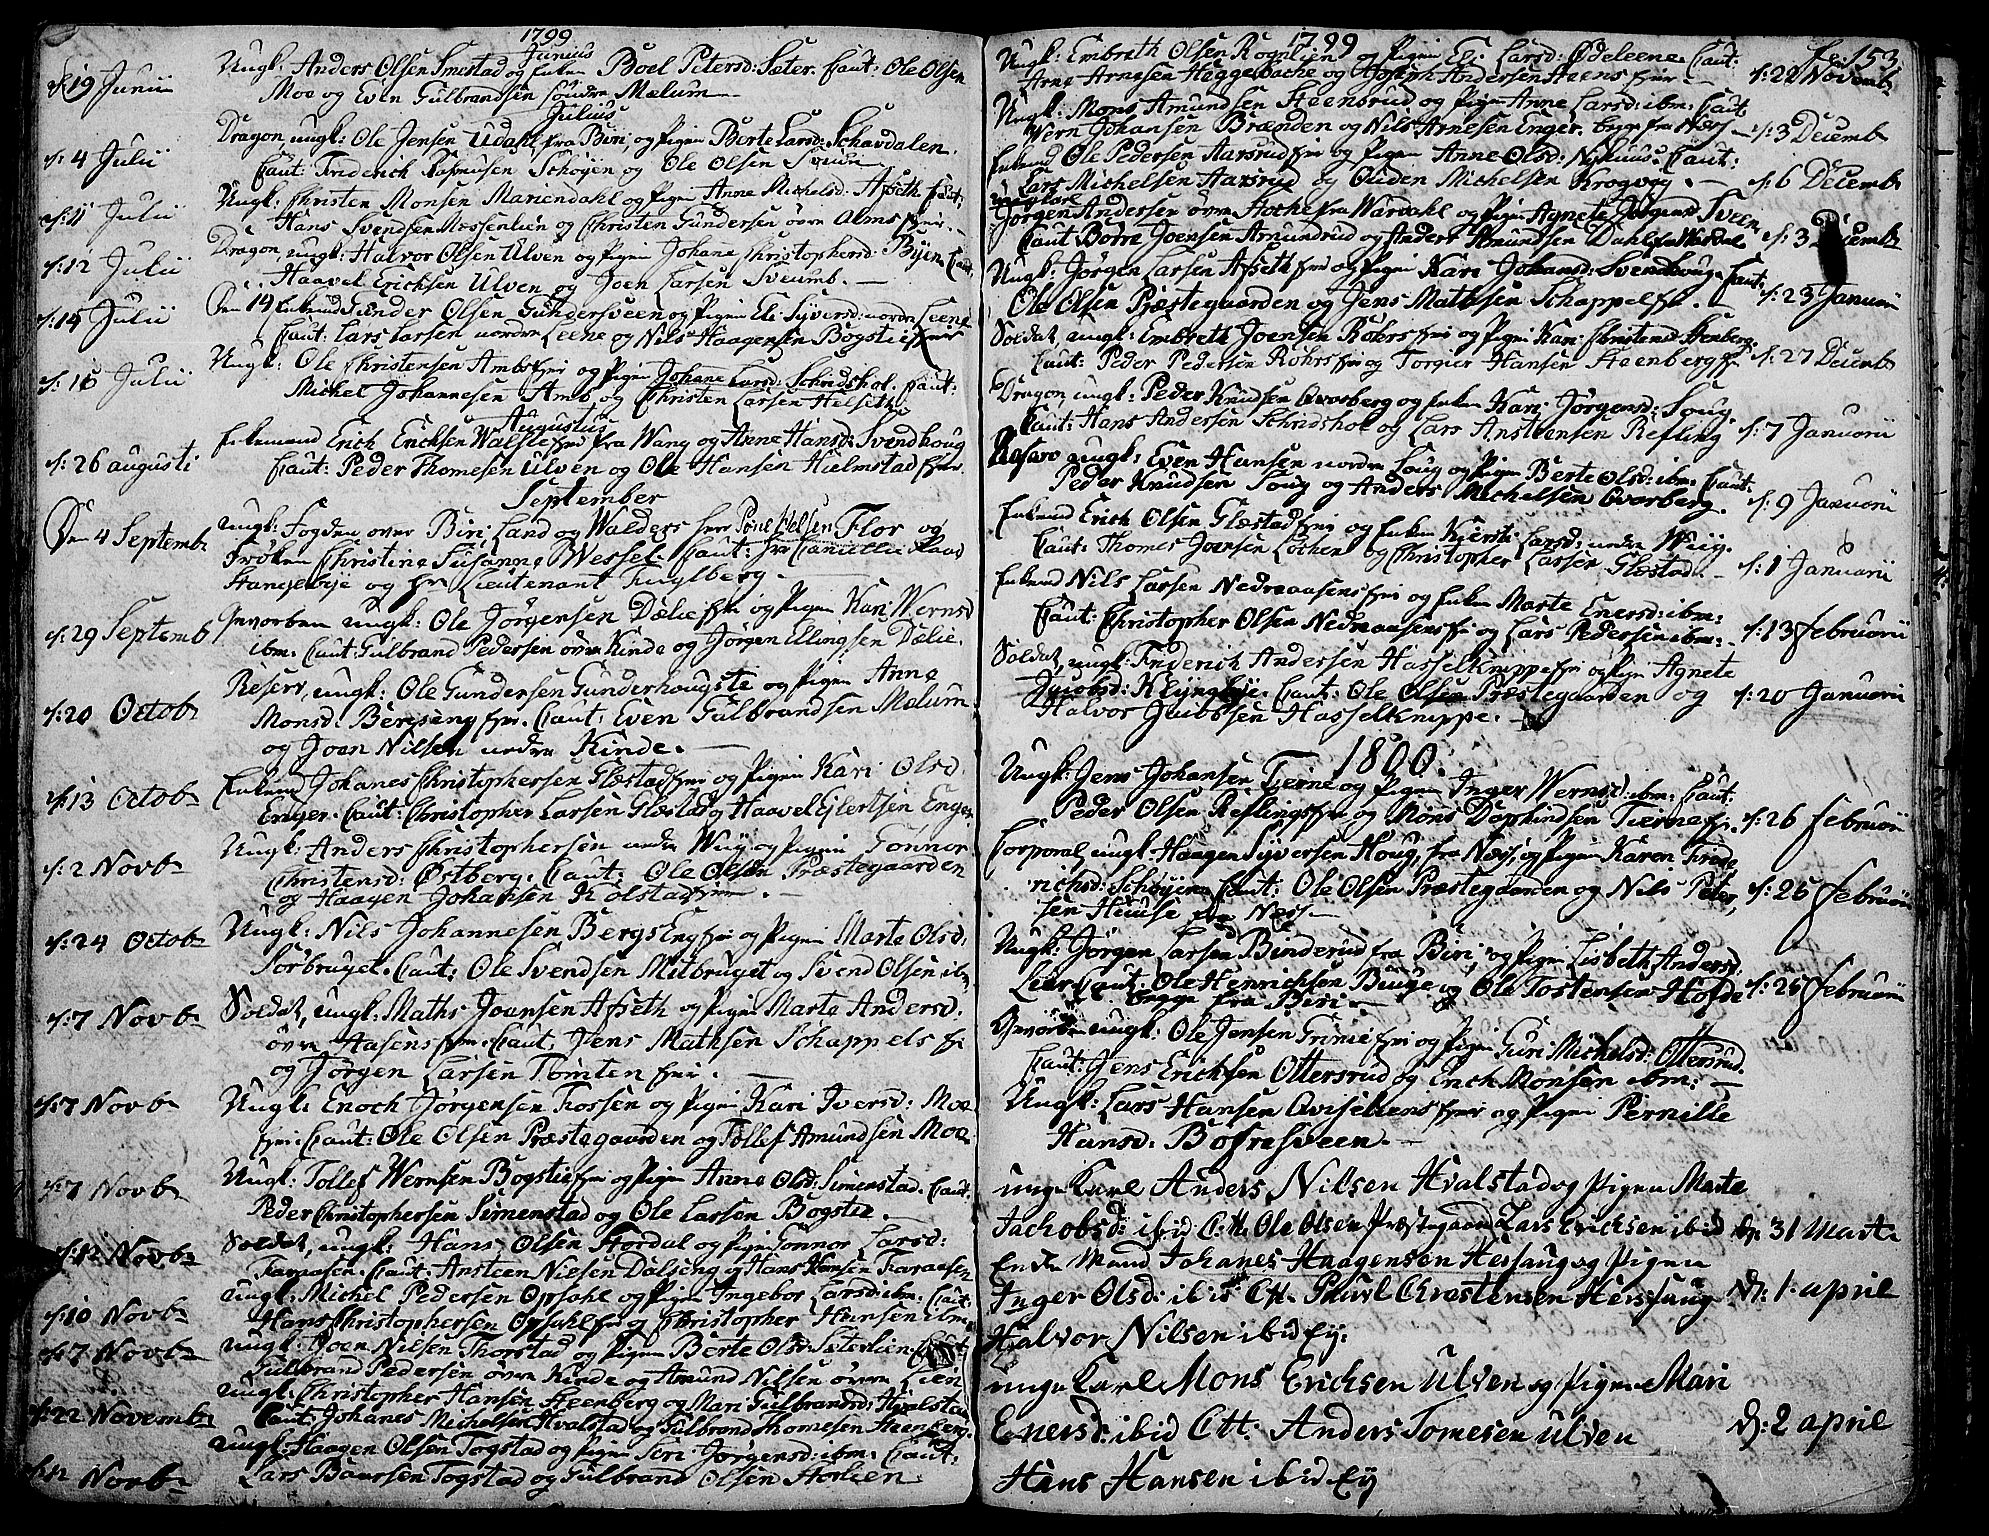 1799
Junius
d: 19 Junii Ungk: Anders Olsen Smestad og Enken Boel Petersd: Sæter. Caut: Ole Olsen
Moe og Even Gulbrandsen søndre Mælum
Julius
d: 4 Julii Dragon, ungk: Ole Jensen Udahl fra Biri, og Pigen Berte Larsd: Schavdalen.
Caut: Friderich Rasmusen Schøyen og Ole Olsen Sveum
d: 11 Julii Ungk: Christen Monsen Mariendahl og Pigen Anne Michelsd: Afseth
Hans Svendsen og Christen Gundersen øvre Alms
d: 12 Julii Dragon ungk: Halvor Olsen Ulven og Pigen Johane Christophersd: Byen. Caut:
Haavel Erichsen Ulven og Joen Larsen Sveumb.
d: 14 Julii Enkemd Olsen Gundersveen og Pigen Eli Syversd: nordre Leene
Caut: Lars Larsen nordre Leene og Nils Haagensen Bogstie
d: 15 Julii Ungk: Ole Christensen Ambs og Pigen Johane Larsd: Schridshol. Caut:
Michel Johannesen Amb og Christen Larsen Helseth
Augustus
d: 26 augusti Enkemand Erich Erichsen Walsle fra Wang og Anne Hansd: Svendhoug
Caut: Peder Thomesen Ulven og Ole Hansen Hielmstad
September
Den 4 Septemb ungk: Fogden over Biri, Land og Walders herr Flor og
Frøken Christine Susanne Wessel. Caut: hr Cancellie Raad
og hr Lieutenant
d: 29 Septemb ungk: Ole Jørgensen Dælie og Pigen Kari Wernsd
ibm. Caut: Gulbrand Pedersen øvre Kinde og Jørgen Ellingsen Dælie.
d: 20 Octob Reserv, ungk: Ole Gundersen Gunderhougstie og Pigen Anne
Monsd: Bergseng Caut: Even Gulbrandsen Mælum
og Joen Nilsen nedre Kinde.
d: 13 Octob Enkemd Johanes Christophersen Glæstad og Pigen Kari Olsd.
Enger. Caut: Christopher Larsen Glæstad og Haavel Giertsen Enger
d: 2 Novb Ungk: Anders Christophersen nedre Wiig og Pigen Gønnor
Christensd: Østberg. Caut: Ole Olsen Præstegaarden
og Haagen Johansen Kolstad
d: 24 Octob Ungk: Nils Johannesen Bergs Eng og Pigen Marte Olsd:
Sørbryget. Caut: Ole Svendsen Mitbryget og Svend Olsen ibm
d: 7 Novb Soldat, ungk: Maths Joensen Afseth og Pigen Marte Andersd.
øvre Aasens Caut: Jens Mathsen Schappels
og Jørgen Larsen Tømten
d: 7 Novb Ungk: Enoch Jørgensen Fossen og Pigen Kari Iversd: Moe
Caut: Ole Olsen Præstegaarden og Tollef Amundsen Moe
d: 7 Novb Ungk: Tollef Wernsen Bogstie og Pigen Anne Olsd: Simenstad. Caut:
Peder Christophersen Simenstad og Ole Larsen Bogstie.
d: 12 Novb Soldat, ungk: Hans Olsen og Pigen Gønnor Larsd:
Faraasen. Caut: Ansteen Nielsen Dalseng og Hans Hansen Faraasen
d: 10 Novb ungk: Michel Pedersen Opsahl og Pigen Ingebor Larsd: ibm. Caut:
Hans Christophersen Opsahl og Christopher Hansen ibm
d: 7 Novb ungk: Joen Nilsen Thorstad og Pigen Berte Olsd: Seterlien. Caut:
Gulbrand Pedersen øvre Kinde og Amund Nilsen øvre Lien
d: 22 Novemb ungk: Christopher Hansen Steenberg og Mari Gulbrandsd: Hvalstad
Caut: Johanes Michelsen Hvalstad og Gulbrand Thomesen Steenberg
d: 12 Novb ungk: Haagen Olsen Togstad og Pigen Siri Jørgensd: ibm: Caut:
Lars Baarsen Togstad og Gulbrand Olsen
1799
153
Ungk: Embreth Olsen Rognlien og Pigen Eli Larsd: Ødeleene. Caut:
Arne Arnesen Heggebache og Joseph Andersen Steens d: 22 Novemb
Ungk: Mons Amundsen Steensrud og Pigen Anne Larsd: ibm: Caut
Wern Johansen Brænden og Nils Arnesen Enger. begge fra Næss d: 3 Decemb
Enkemd Ole Pedersen Aasrud og Pigen Anne Olsd: Nyhuus: Caut:
Lars Michelsen Aasrud og Gulden Michelsen Krogvig. d: 6 Decemb
Jørgen Andersen øvre fra Wardahl og Pigen Agnete Jørgensd Sveen
Caut Børre Joensen Amundrud og Anders Amundsen Dahl d: 3 Decemb
Ungk: Jørgen Larsen Afseth og Pigen Kari Johansd: Svendhoug. Caut:
Ole Olsen Præstegaarden og Jens Mathisen Schappel d: 23 Januarii
Soldat, ungk: Embreth Joensen Røhrs og Pigen Kari Christensd Steenberg.
Caut: Peder Pedersen Røhrs og Torgier Hansen Steenberg d: 27 Decemb
Dragon ungk: Peder Knudsen Qvarberg og Enken Kari Jørgensd: Soug
Caut: Hans Andersen Schridshol og Lars Anstensen Refling d: 7 Januarii
ungk: Even Hansen nordre Soug og Pigen Berte Olsd: ibm: Caut:
Peder Knudsen Soug og Anders Michelsen Qvarberg. d: 9 Januarii
Enkemd Erich Olsen Glæstad og Enken Kjersti Larsd: nedre Wiig.
Caut: Thomes Joensen Løthen og Christopher Larsen Glæstad. d: 1 Januarii
Enkemd Nils Larsen Nedreaasens og Enken Marte Enersd: ibm:
Caut: Christopher Olsen Nedreaasens og Lars Pedersen ibm: d: 13 Februarii
Soldat, ungk: Friderich Andersen Hasselknippe og Pigen Agnete
Jacobsd: Klyngbye. Caut: Ole Olsen Præstegaarden og d: 20 Januarii
Halvor Jacobsen Hasselknippe.
1800.
Ungk: Jens Johansen Tierne og Pigen Inger Wernsd: ibm: Caut:
Peder Olsen Reflings og Mons Tierne d: 26 Februarii
Corporal, ungk: Haagen Syversen Houg, fra Næss, og Pigen Karen Fride
richsd: Schøyen Caut: Ole Olsen Præstegaarden og Nils Peder, d: 25 Februarii
sen Huuse fra Næss
Ungk: Jørgen Larsen Binderud fra Biri, og Pigen Lisbeth Andersd:
Lier Caut: Ole Henrichsen Buuge og Ole Tostensen Hofde d: 25 Februarii
begge fra Biri.
ungk: Ole Jensen Grimie og Pigen Guri Michelsd: Ottersrud.
Caut: Jens Erichsen Ottersrud og Erich Monsen ibm:
Ungk: Lars Hansen og Pigen Pernille
Hansd: Bofresveen.
unge Karl Anders Nilsen Hvalstad og Pigen Marte
Jachobsd: ibid C:tt. Ole Olsen Præstegaard Lars Ericksen ibid d: 31 Marts
Enke Mand Johanes Haagensen Hersaug og Pigen
Inger Olsd: ibid C:tt. Pauel Christensen Herssaug d: 1. april
Halvor Nilsen ibid Ej.
unge Karl Mons Ericksen Ulven og Pigen Mari
Enersd: ibid C:tt: Anders Tomesen Ulven d: 2 april
Hans Hansen ibid Ej